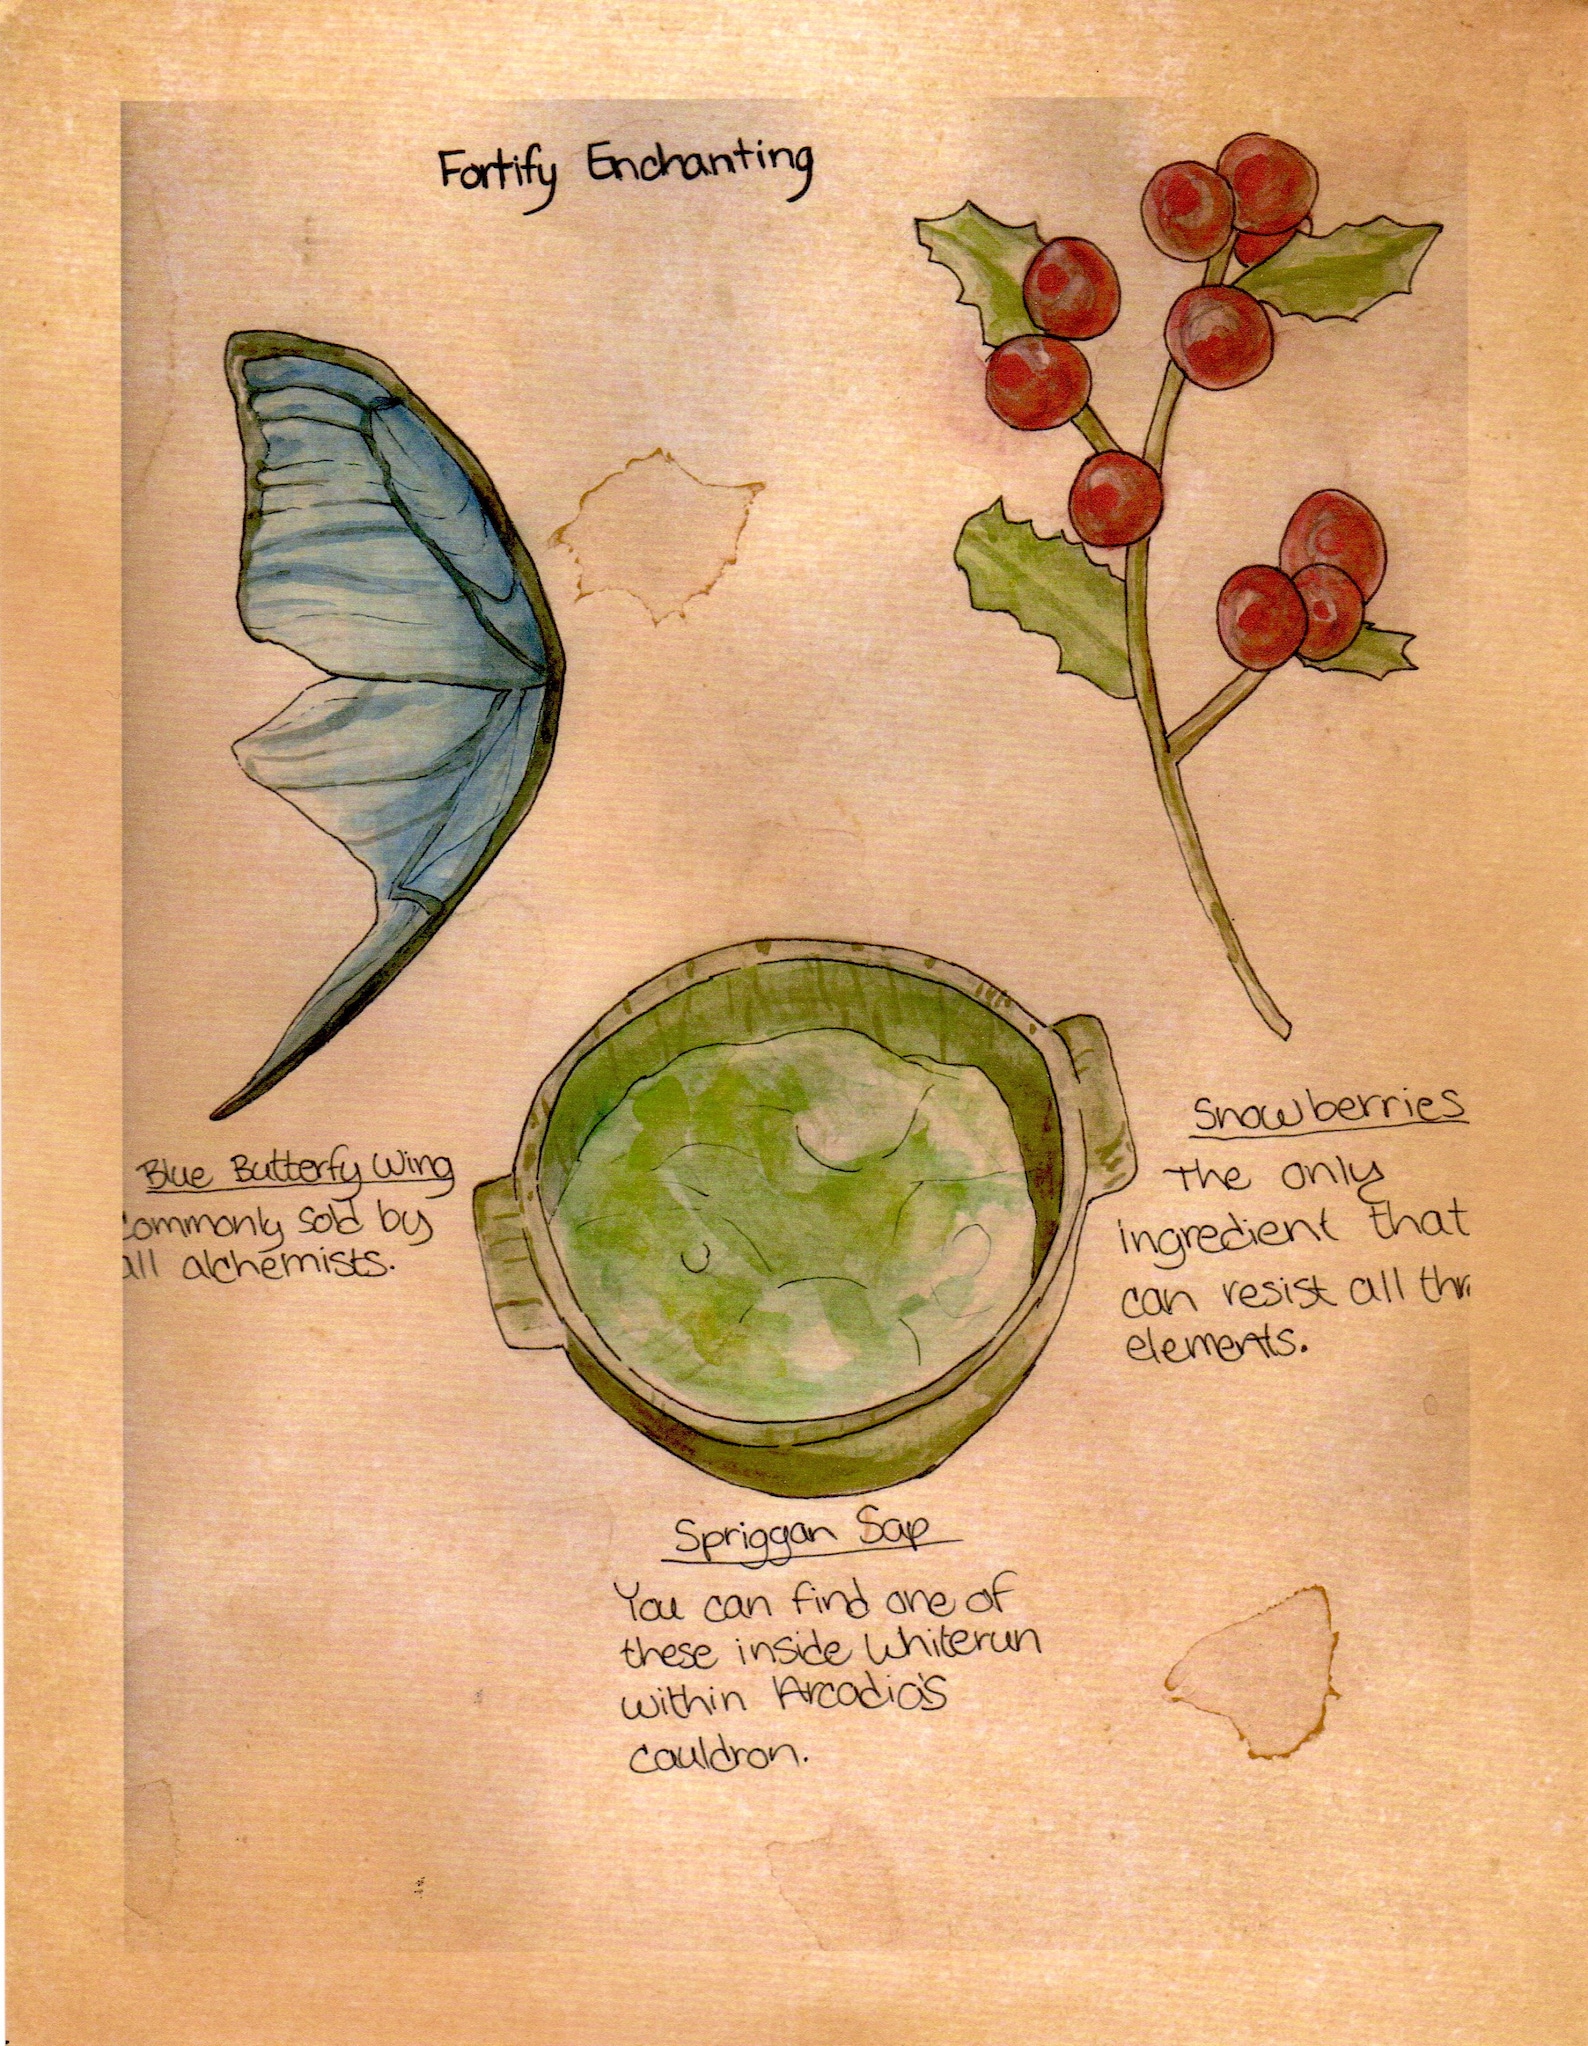 Fortify Enchanting
Blue Butterfy Wing
commonly sold by
all alchemists.
Snowberries
The only
ingredient that
can resist all thr
elements.
Spriggan Sap
You can find one of
these inside Whiterun
within Arcadia's
cauldron.